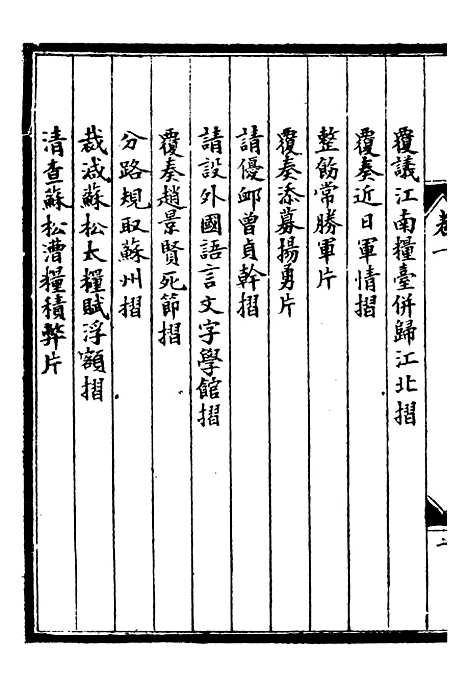 卷一
二
覆議江南糧臺併歸江北摺
覆奏近日軍情摺
整飭常勝軍片
覆奏添募揚勇片
請優邺曾貞幹摺
請設外國語言文字學館摺
覆奏趙景賢死節摺
分路規取蘇州摺
裁減蘇松太糧賦浮額摺
清查蘇松漕糧積弊片